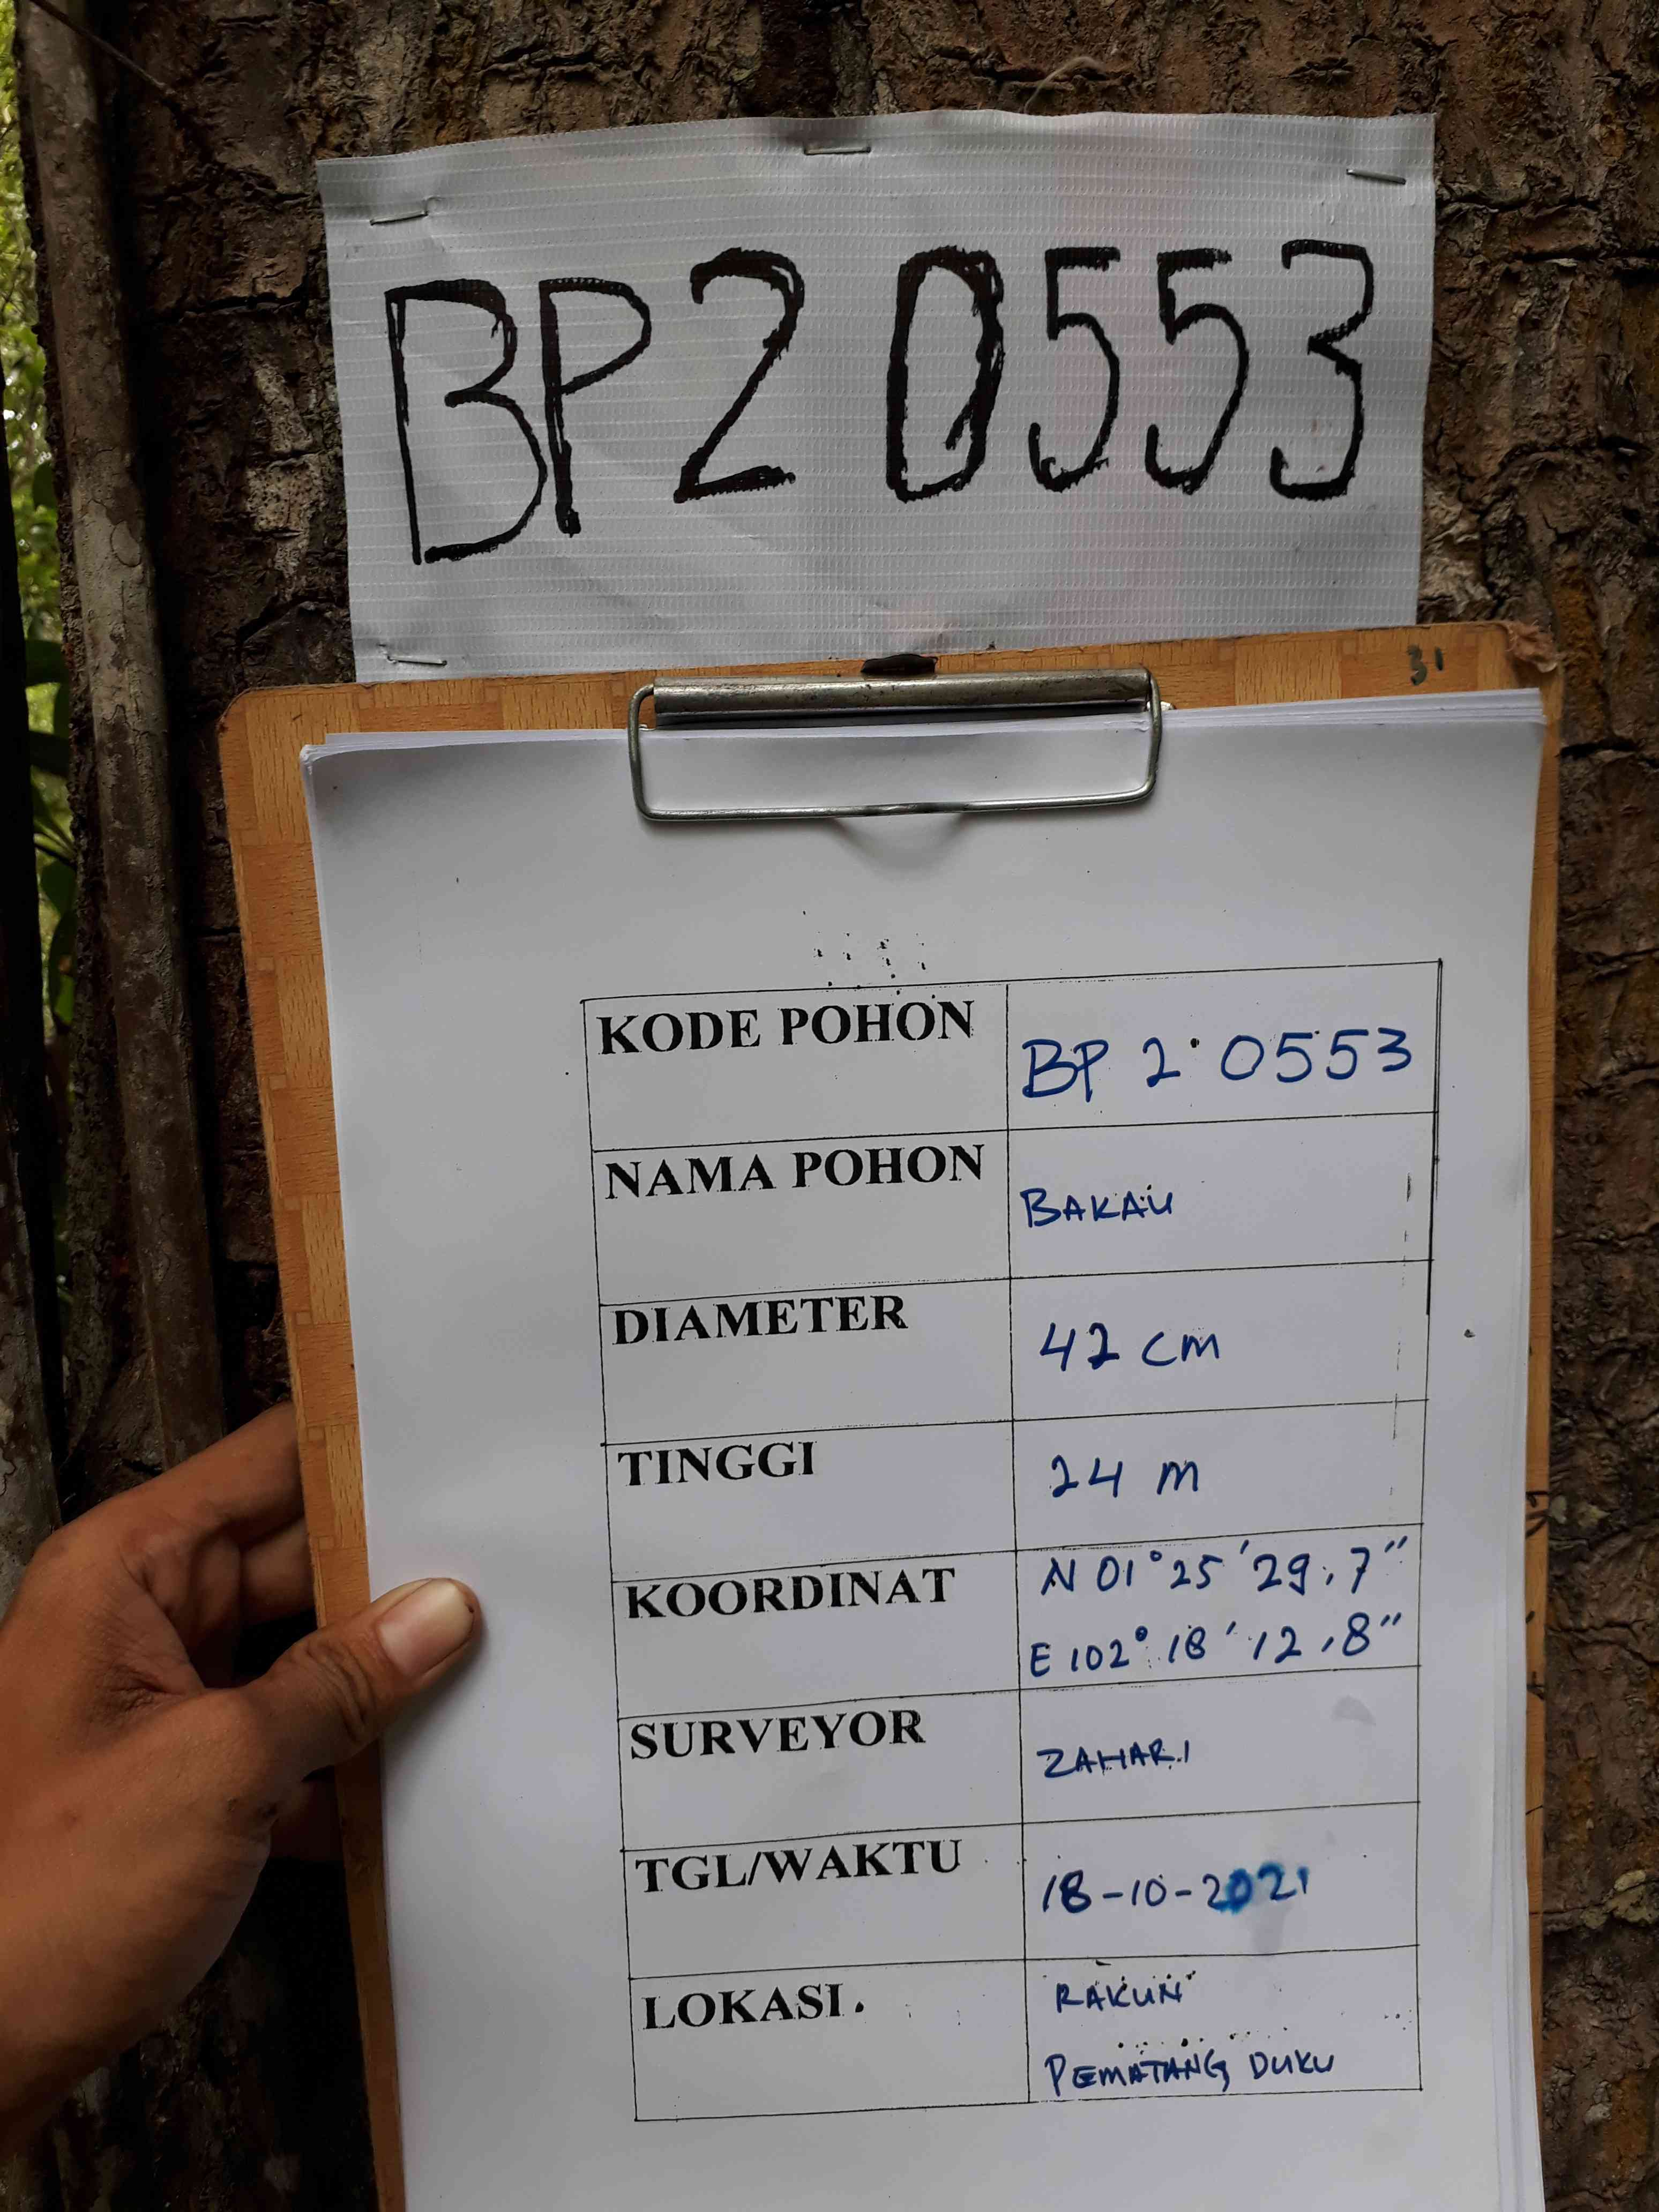 BP2 0553
31
KODE POHON BP 2 0553
NAMA POHON BAKAU
DIAMETER 42 cm
TINGGI 24 m
KOORDINAT N 01° 25' 29,7"
E 102° 18' 12,8"
SURVEYOR ZAHARI
TGL/WAKTU 18-10-2021
LOKASI. RAKUN
PEMATANG DUKU